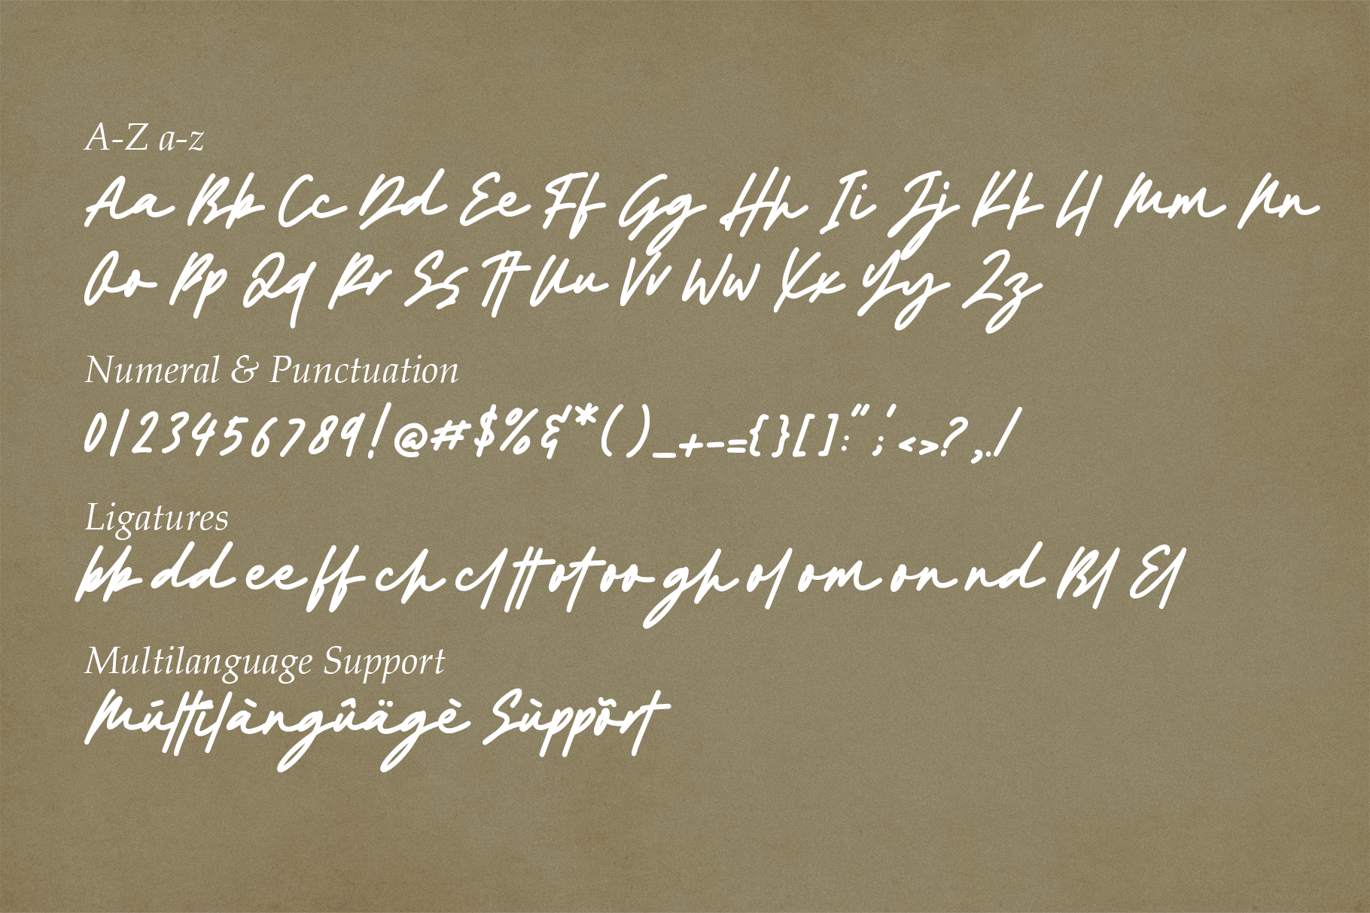 A-Z a-z
Aa Bb Cc Dd Ee Ff Gg Hh Ii Jj Kk Ll Mm Nn
Oo Pp Qq Rr Ss Tt Uu Vv Ww Xx Yy Zz
Numeral & Punctuation
0123456789!@#$%&*()_+-={}[]:";'<>?,./
Ligatures
bb dd ee ff ch cl tt ot oo gh ol om on nd Bl El
Multilanguage Support
Múltilàngûägè Sùppõrt